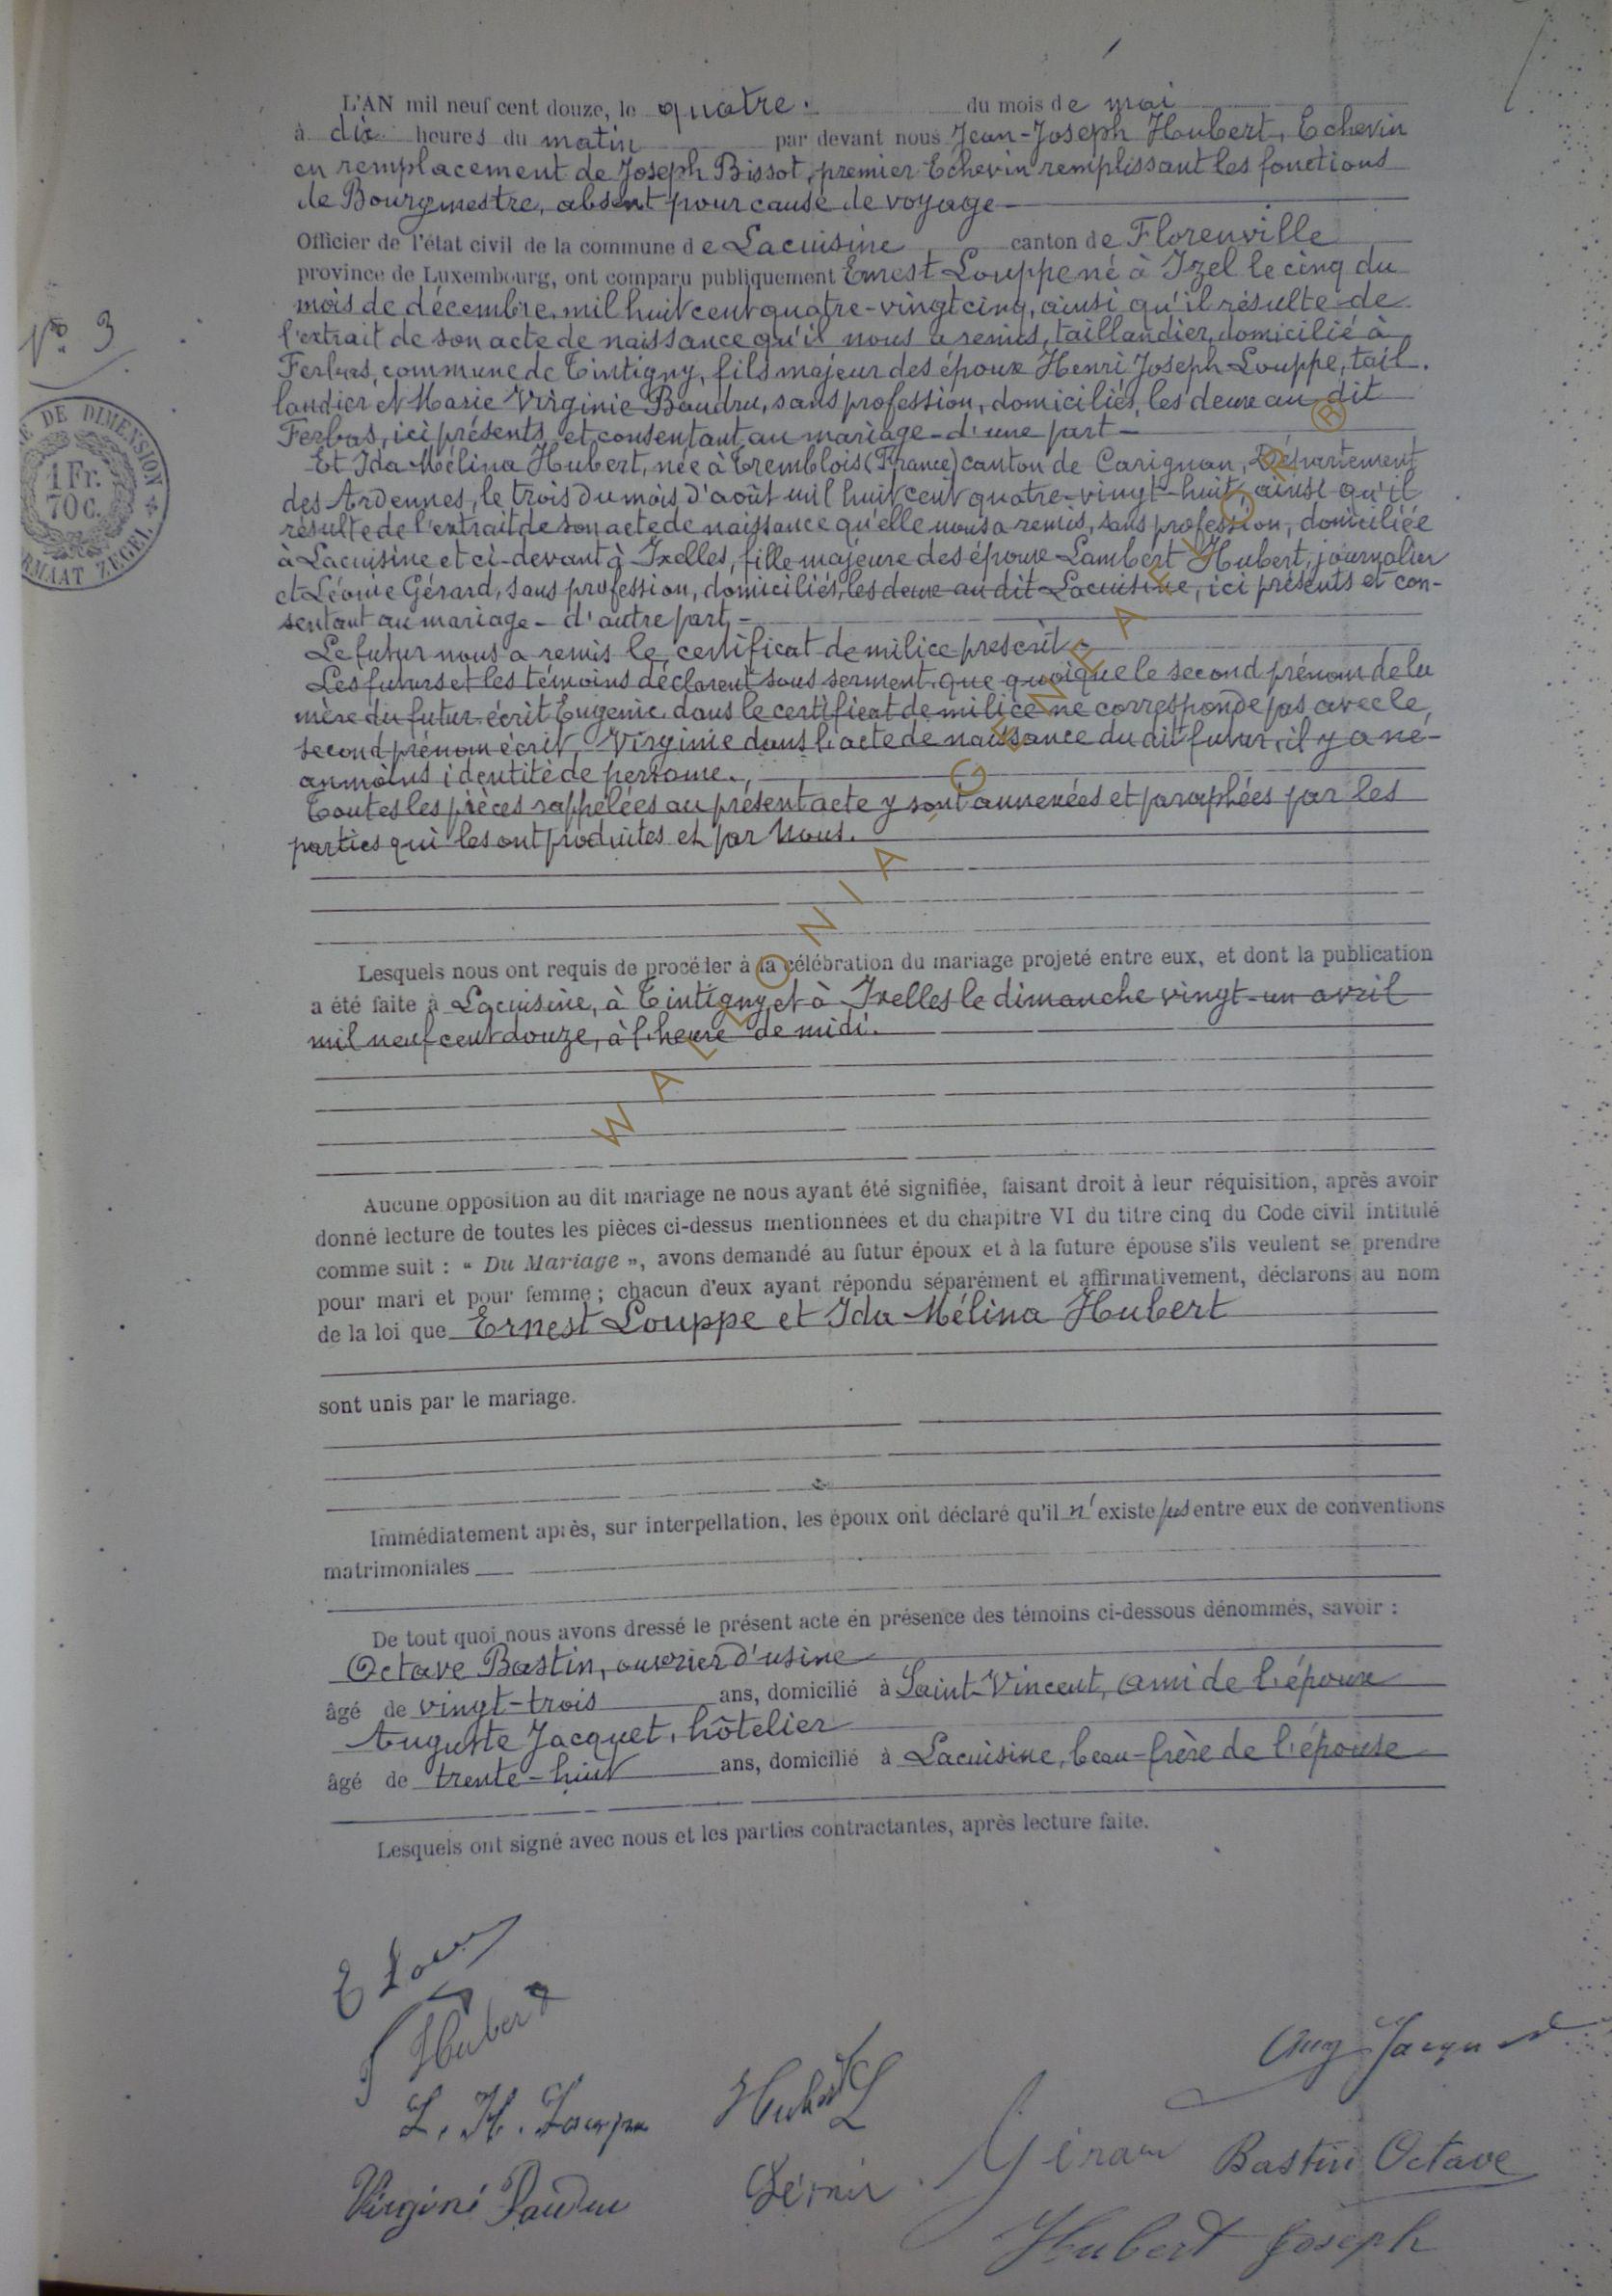 L'AN mil neuf cent douze, le quatre. du mois de mai
à dix heures du matin par devant nous Jean-Joseph Hubert, Echevin
en remplacement de Joseph Bissot, premier Echevin remplissant les fonctions
de Bourgmestre, absent pour cause de voyage
Officier de l'état civil de la commune de Lacuisine canton de Florenville
province de Luxembourg, ont comparu publiquement Ernest Louppe né à Izel le cinq du
mois de décembre, mil huit cent quatre-vingt cinq, ainsi qu'il résulte de
N° 3
l'extrait de son acte de naissance qu'il nous a remis, taillandier, domicilié à
Ferbas, commune de Tintigny, fils majeur des époux Henri Joseph Louppe, tail-
landier et Marie Virginie Baudru, sans profession, domiciliés, les deux au dit
Ferbas, ici présents et consentant au mariage - d'une part -
DE DIMENSION
1 Fr.
70 c.
RMAAT ZEGEL
Et Ida Mélina Hubert, née à Tremblois (France) canton de Carignan, Département
des Ardennes, le trois du mois d'août mil huit cent quatre-vingt-huit, ainsi qu'il
résulte de l'extrait de son acte de naissance qu'elle nous a remis, sans profession, domiciliée
à Lacuisine et ci-devant à Ixelles, fille majeure des époux Lambert Hubert, journalier
et Léonie Gérard, sans profession, domiciliés, les deux au dit Lacuisine, ici présents et con-
sentant au mariage - d'autre part -
Le futur nous a remis le certificat de milice prescrit -
Les futurs et les témoins déclarent sous serment que quoique le second prénom de la
mère du futur écrit Eugenie dans le certificat de milice ne corresponde pas avec le
second prénom écrit Virginie dans l'acte de naissance du dit futur, il y a né-
anmoins identité de personne.
Toutes les pièces rappelées au présent acte y sont annexées et paraphées par les
parties qui les ont produites et par Nous.
WALLONIA - GENEALOGIE ®
Lesquels nous ont requis de procéder à la célébration du mariage projeté entre eux, et dont la publication
a été faite à Lacuisine, à Tintigny et à Ixelles le dimanche vingt-un avril
mil neuf cent douze, à l'heure de midi.
Aucune opposition au dit mariage ne nous ayant été signifiée, faisant droit à leur réquisition, après avoir
donné lecture de toutes les pièces ci-dessus mentionnées et du chapitre VI du titre cinq du Code civil intitulé
comme suit : « Du Mariage », avons demandé au futur époux et à la future épouse s'ils veulent se prendre
pour mari et pour femme ; chacun d'eux ayant répondu séparément et affirmativement, déclarons au nom
de la loi que Ernest Louppe et Ida Mélina Hubert
sont unis par le mariage.
Immédiatement après, sur interpellation, les époux ont déclaré qu'il n'existe pas entre eux de conventions
matrimoniales
De tout quoi nous avons dressé le présent acte en présence des témoins ci-dessous dénommés, savoir :
Octave Bastin, ouvrier d'usine
âgé de vingt-trois ans, domicilié à Saint-Vincent, ami de l'époux
Auguste Jacquet, hôtelier
âgé de trente-huit ans, domicilié à Lacuisine, beau-frère de l'épouse
Lesquels ont signé avec nous et les parties contractantes, après lecture faite.
I Hubert
Aug Jacquet
Hubert L
Gérard Bastin Octave
Virginie Baudru
Hubert Joseph